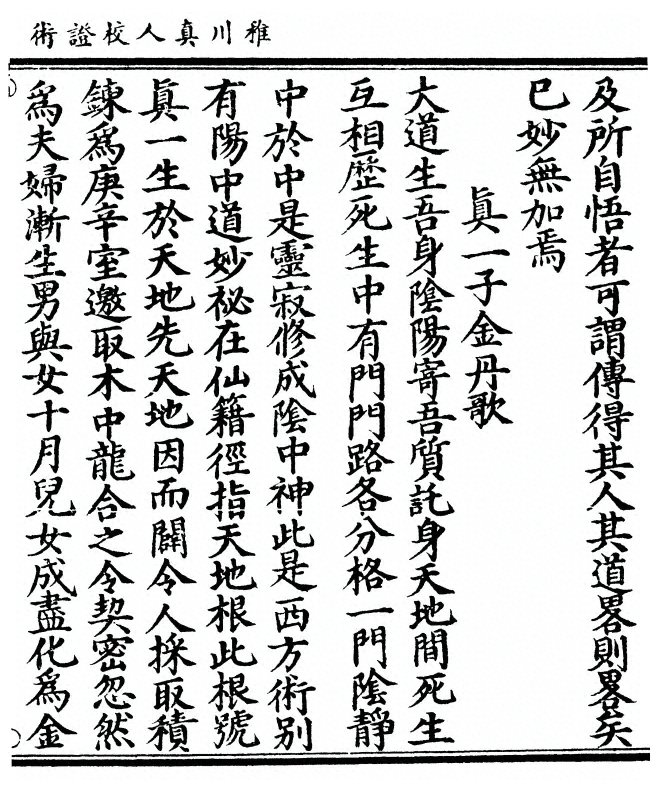 稚川真人校證術
及所自悟者可謂傳得其人其道畧則畧矣
巳妙無加焉
真一子金丹歌
大道生吾身陰陽寄吾質託身天地間死生
互相歷死生中有門門路各分格一門陰靜
中於中是靈寂修成陰中神此是西方術别
有陽中道妙祕在仙籍徑指天地根此根號
眞一生於天地先天地因而闢令人採取積
鍊爲庚辛室邀取木中龍合之令契密忽然
爲夫婦漸生男與女十月兒女成盡化爲金